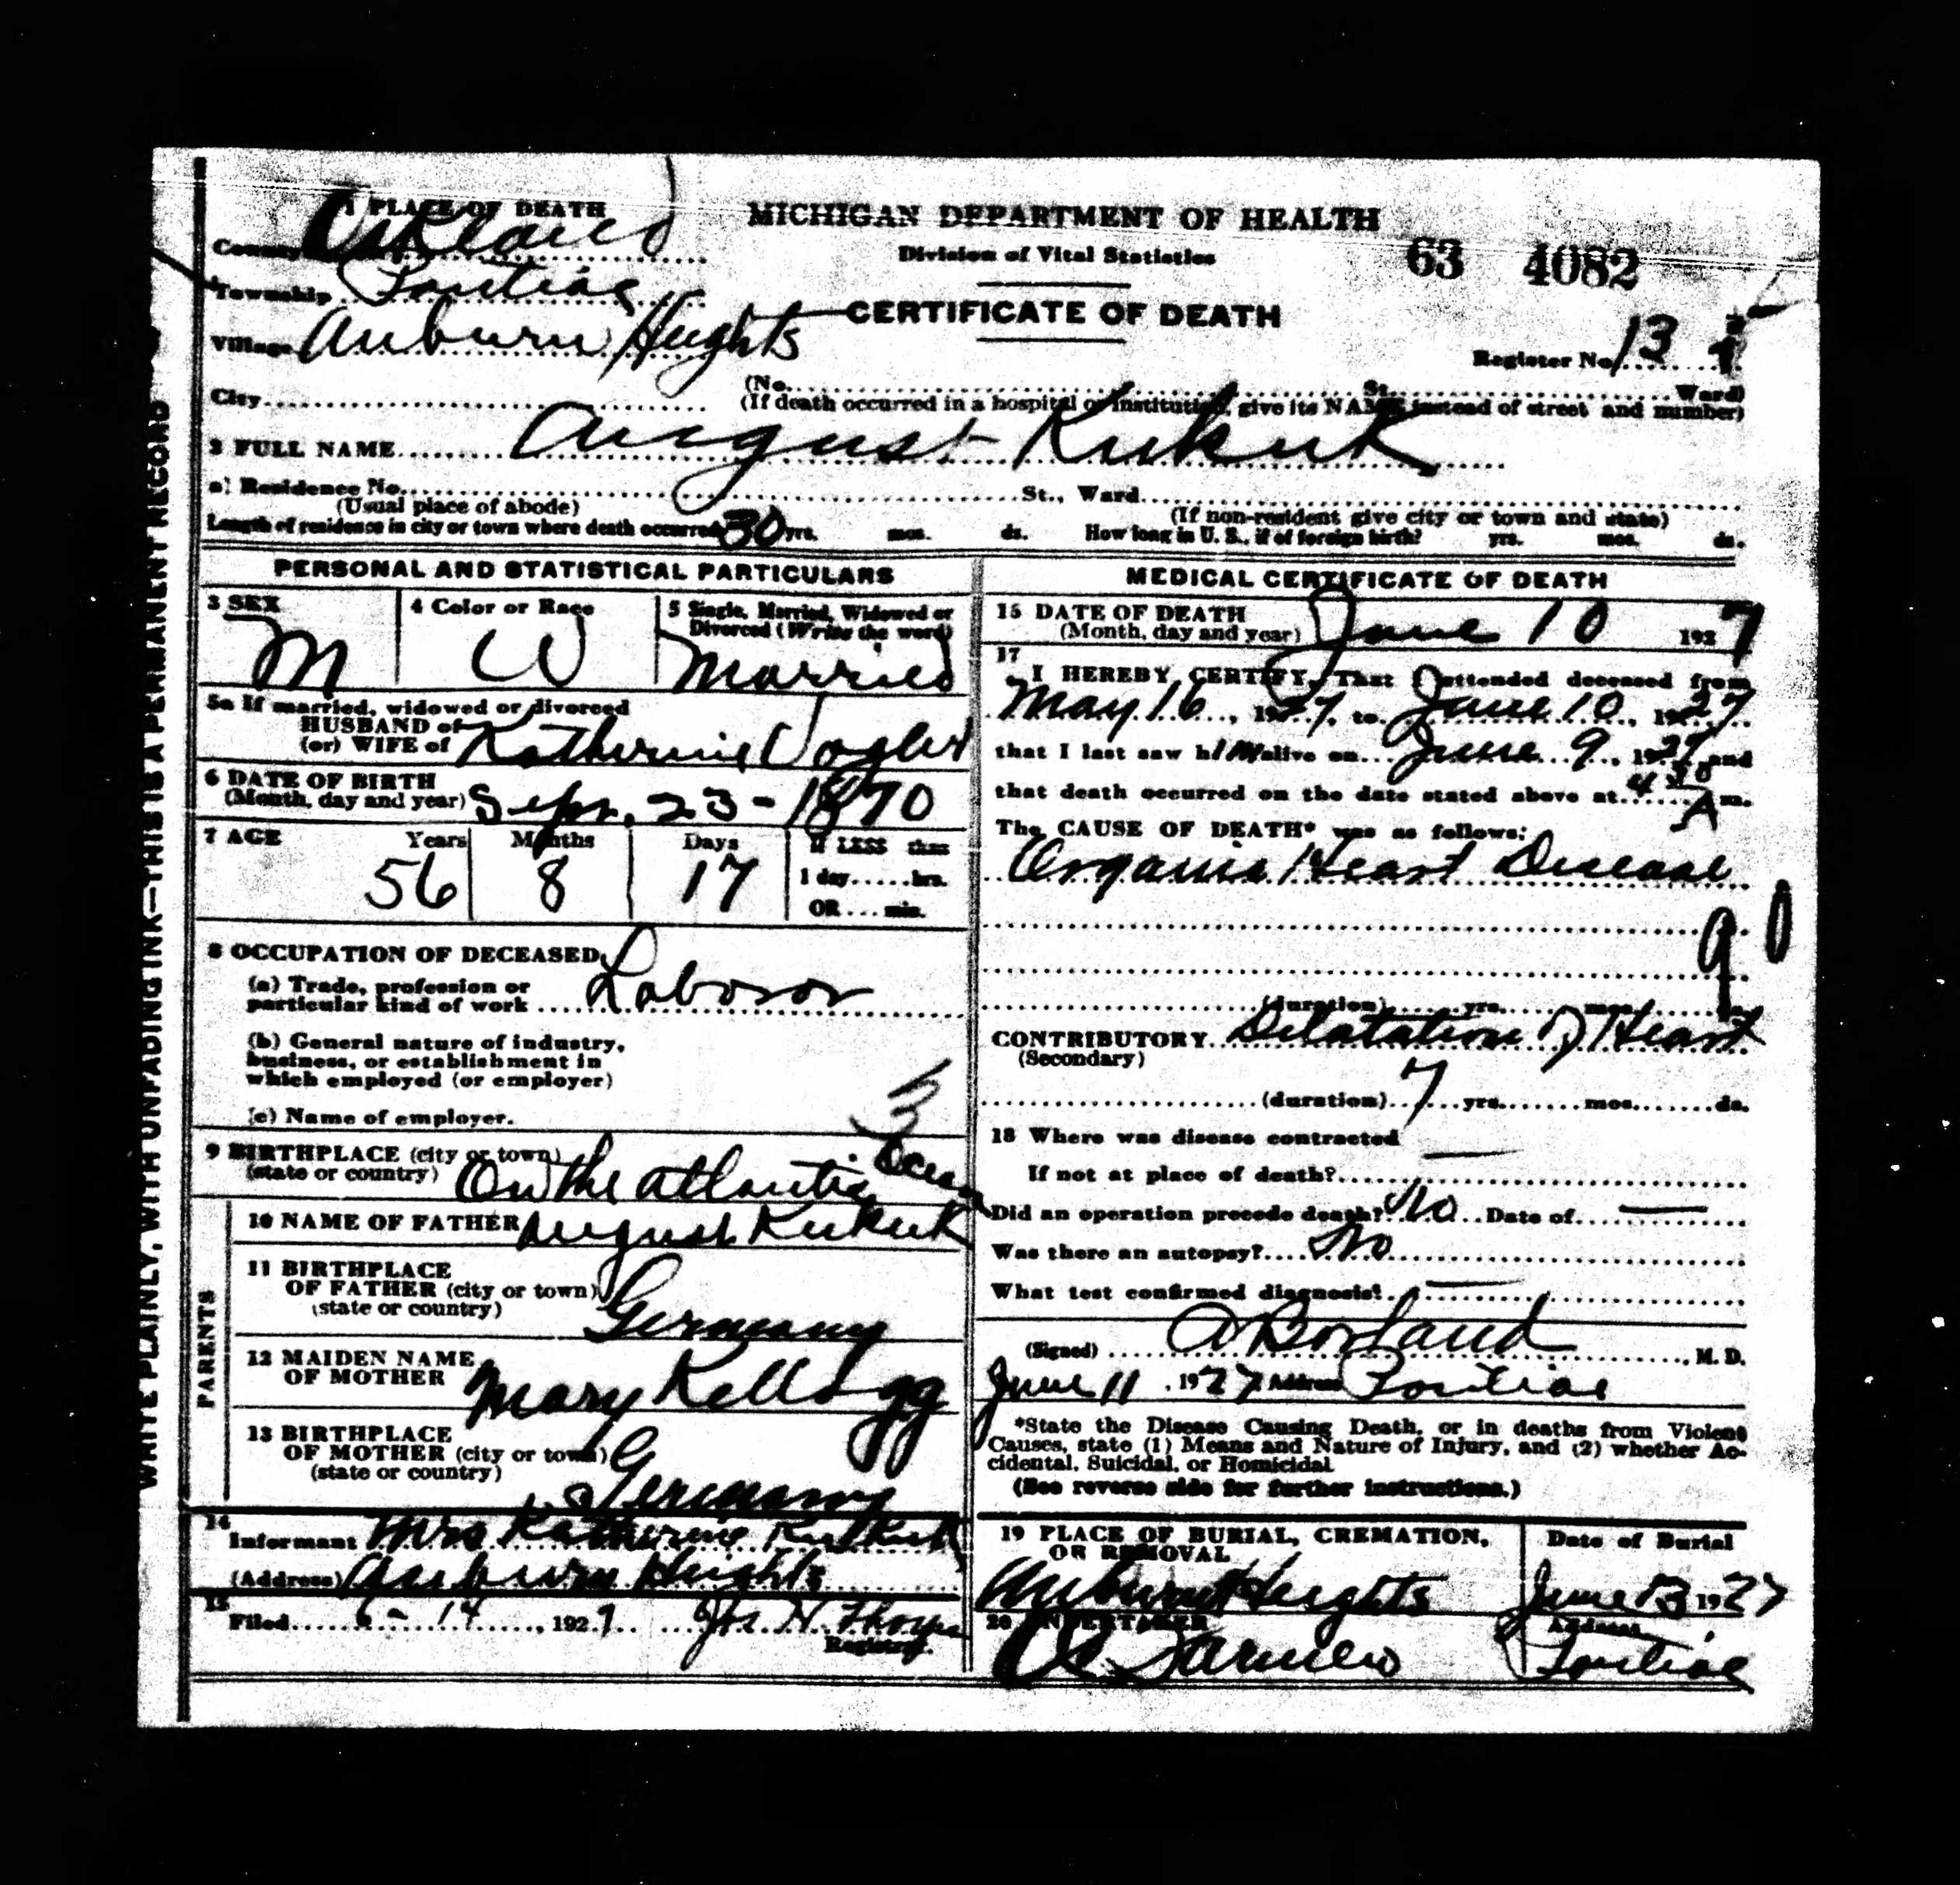 1 PLACE OF DEATH
County Oakland
Township Pontiac
Village Auburn Heights
City
MICHIGAN DEPARTMENT OF HEALTH
Division of Vital Statistics
63 4082
CERTIFICATE OF DEATH
Register No. 13
(No. St. Ward)
(If death occurred in a hospital or institution, give its NAME instead of street and number)
2 FULL NAME August Kukuk
a) Residence No. St., Ward
(Usual place of abode) (If non-resident give city or town and state)
Length of residence in city or town where death occurred 30 yrs. mos. ds. How long in U. S., if of foreign birth? yrs. mos. ds.
WRITE PLAINLY, WITH UNFADING INK—THIS IS A PERMANENT RECORD
PERSONAL AND STATISTICAL PARTICULARS
3 SEX M
4 Color or Race W
5 Single, Married, Widowed or
Divorced (Write the word)
Married
5a If married, widowed or divorced
HUSBAND of
(or) WIFE of Katherine Vogler
6 DATE OF BIRTH
(Month, day and year) Sept. 23-1870
7 AGE Years Months Days If LESS than
56 8 17 1 day hrs.
OR min.
8 OCCUPATION OF DECEASED
(a) Trade, profession or
particular kind of work Laboror
(b) General nature of industry,
business, or establishment in
which employed (or employer)
(c) Name of employer.
9 BIRTHPLACE (city or town)
(state or country) On the Atlantic Ocean
PARENTS
10 NAME OF FATHER August Kukuk
11 BIRTHPLACE
OF FATHER (city or town)
(state or country) Germany
12 MAIDEN NAME
OF MOTHER Mary Kellogg
13 BIRTHPLACE
OF MOTHER (city or town)
(state or country) Germany
14
Informant Mrs Katherine Kukuk
(Address) Auburn Heights
15
Filed 6-14, 1927 Jos H Thorpe
Registrar.
MEDICAL CERTIFICATE OF DEATH
15 DATE OF DEATH
(Month, day and year) June 10 1927
17
I HEREBY CERTIFY, That I attended deceased from
May 16, 1927, to June 10, 1927
that I last saw him alive on June 9, 1927, and
that death occurred on the date stated above at 4 30 A m.
The CAUSE OF DEATH* was as follows:
Organic Heart Disease
90
(duration) yrs. mos. ds.
CONTRIBUTORY Dilatation of Heart
(Secondary)
(duration) 7 yrs. mos. ds.
18 Where was disease contracted
If not at place of death?
Did an operation precede death? No Date of
Was there an autopsy? No
What test confirmed diagnosis?
(Signed) A Borland, M. D.
June 11, 1927 Address Pontiac
*State the Disease Causing Death, or in deaths from Violent
Causes, state (1) Means and Nature of Injury, and (2) whether Ac-
cidental, Suicidal, or Homicidal
(See reverse side for further instructions.)
19 PLACE OF BURIAL, CREMATION,
OR REMOVAL
Auburn Heights
Date of Burial
June 13 1927
20 UNDERTAKER
Address
Pontiac